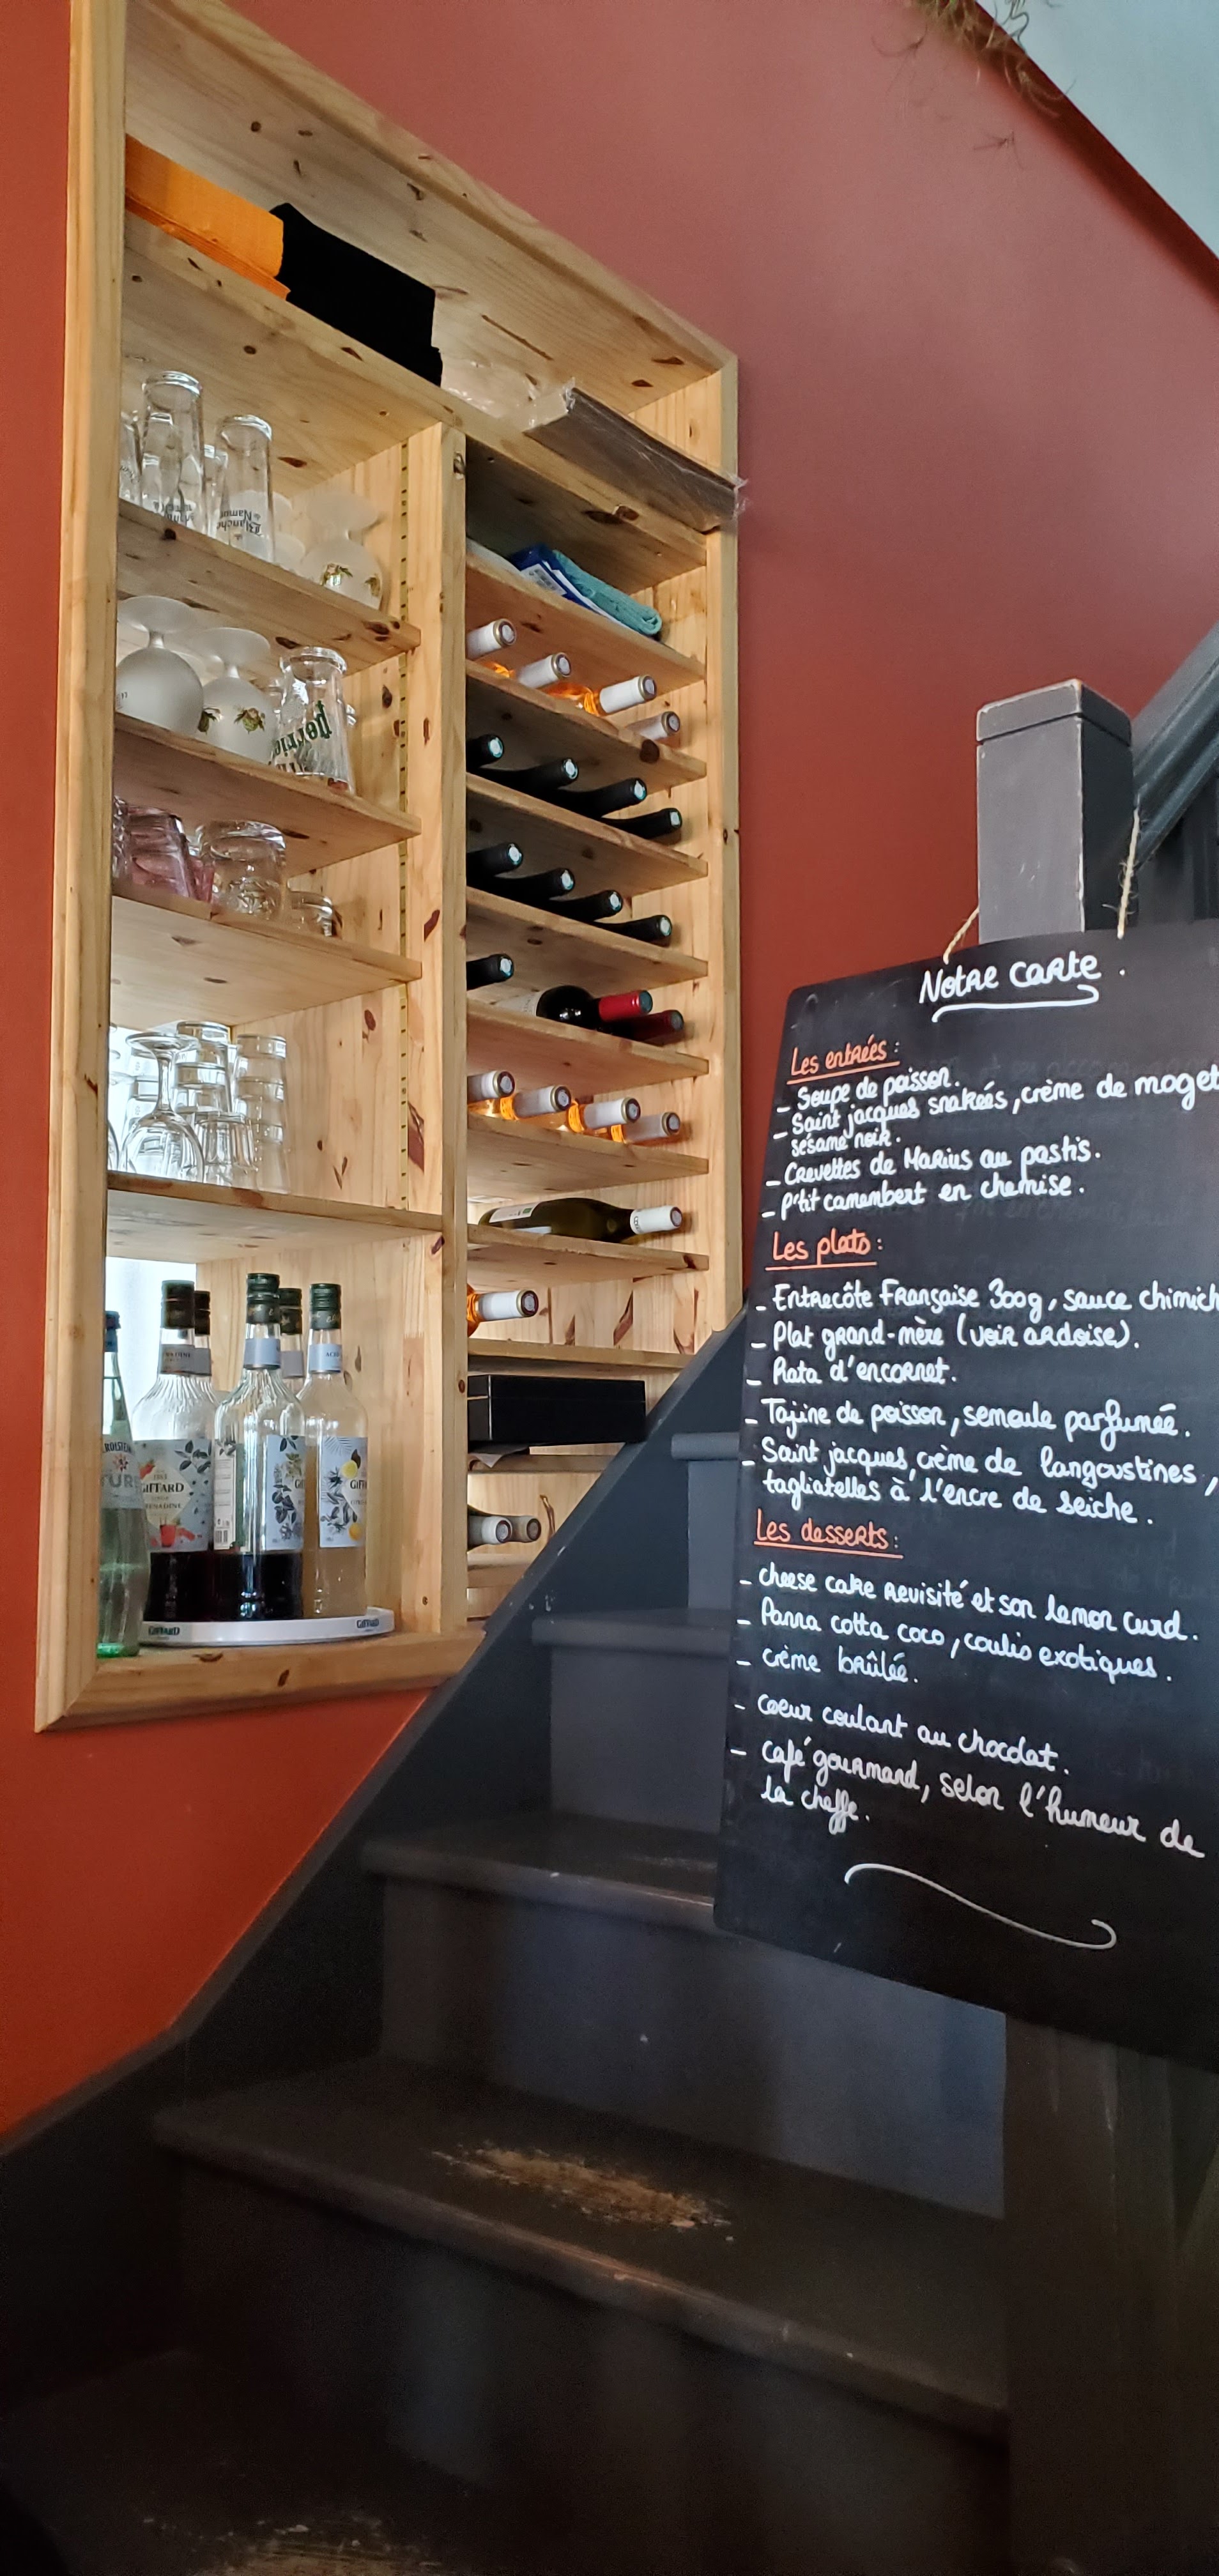 Notre carte.
Les entrées :
- Soupe de poisson.
- Saint jacques snakeés, crème de moget
sésame noir.
- Crevettes de Marius au pastis.
- P'tit camembert en chemise.
Les plats :
- Entrecôte Française 300g, sauce chimich
- Plat grand-mère (voir ardoise).
- Rata d'encornet.
- Tajine de poisson, semoule parfumée.
- Saint jacques, crème de langoustines,
tagliatelles à l'encre de seiche.
Les desserts :
- cheese cake revisité et son lemon curd.
- Panna cotta coco, coulis exotiques.
- crème brûlée.
- coeur coulant au chocolat.
- café gourmand, selon l'humeur de
la cheffe.
Blanche
Namur
GIFFARD
GIFFARD
GIFFARD